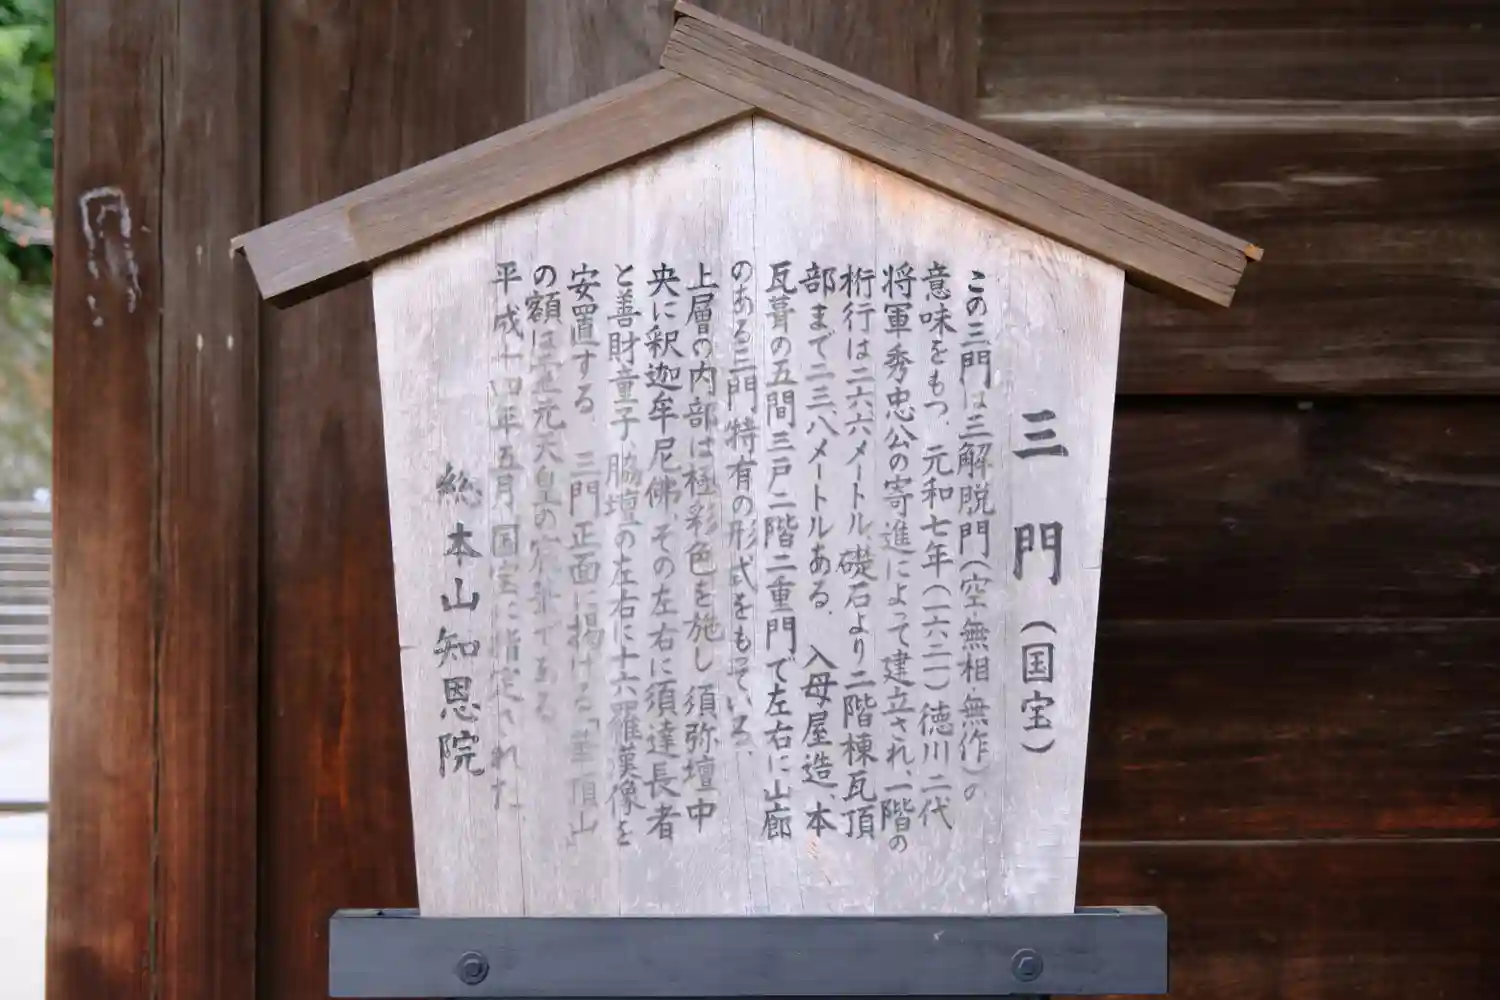 三門（国宝）
この三門は三解脱門（空・無相・無作）の
意味をもつ、元和七年（一六二一）徳川二代
将軍秀忠公の寄進によって建立され、一階の
桁行は二六、六メートル、礎石より二階棟瓦頂
部まで二三、八メートルある。入母屋造、本
瓦葺の五間三戸二階二重門で左右に山廊
のある三門特有の形式をもっている。
上層の内部は極彩色を施し須弥壇中
央に釈迦牟尼佛、その左右に須達長者
と善財童子、脇壇の左右に十六羅漢像を
安置する。三門正面に掲げる「華頂山」
の額は霊元天皇の宸筆である。
平成十四年五月国宝に指定された。
総本山知恩院